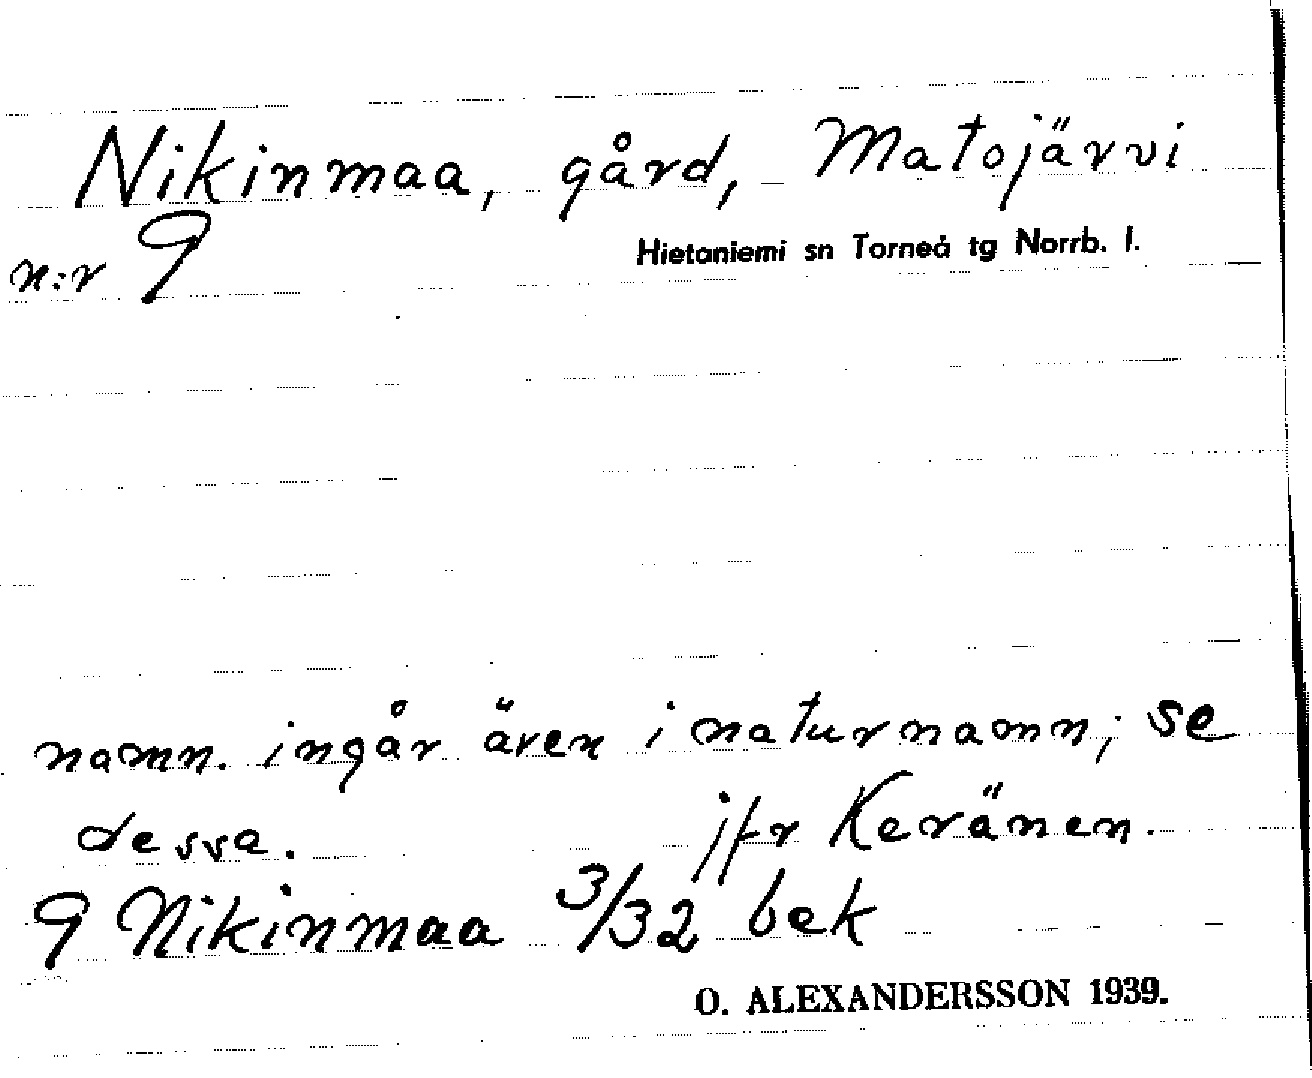 Nikinmaa, gård, Matojärvi
n:r 9
Hietaniemi sn Torneå tg Norrb. l.
namn. ingår även i naturnamn; se
dessa. jfr Keränen.
9 Nikinmaa 3/32 bek
O. ALEXANDERSSON 1939.